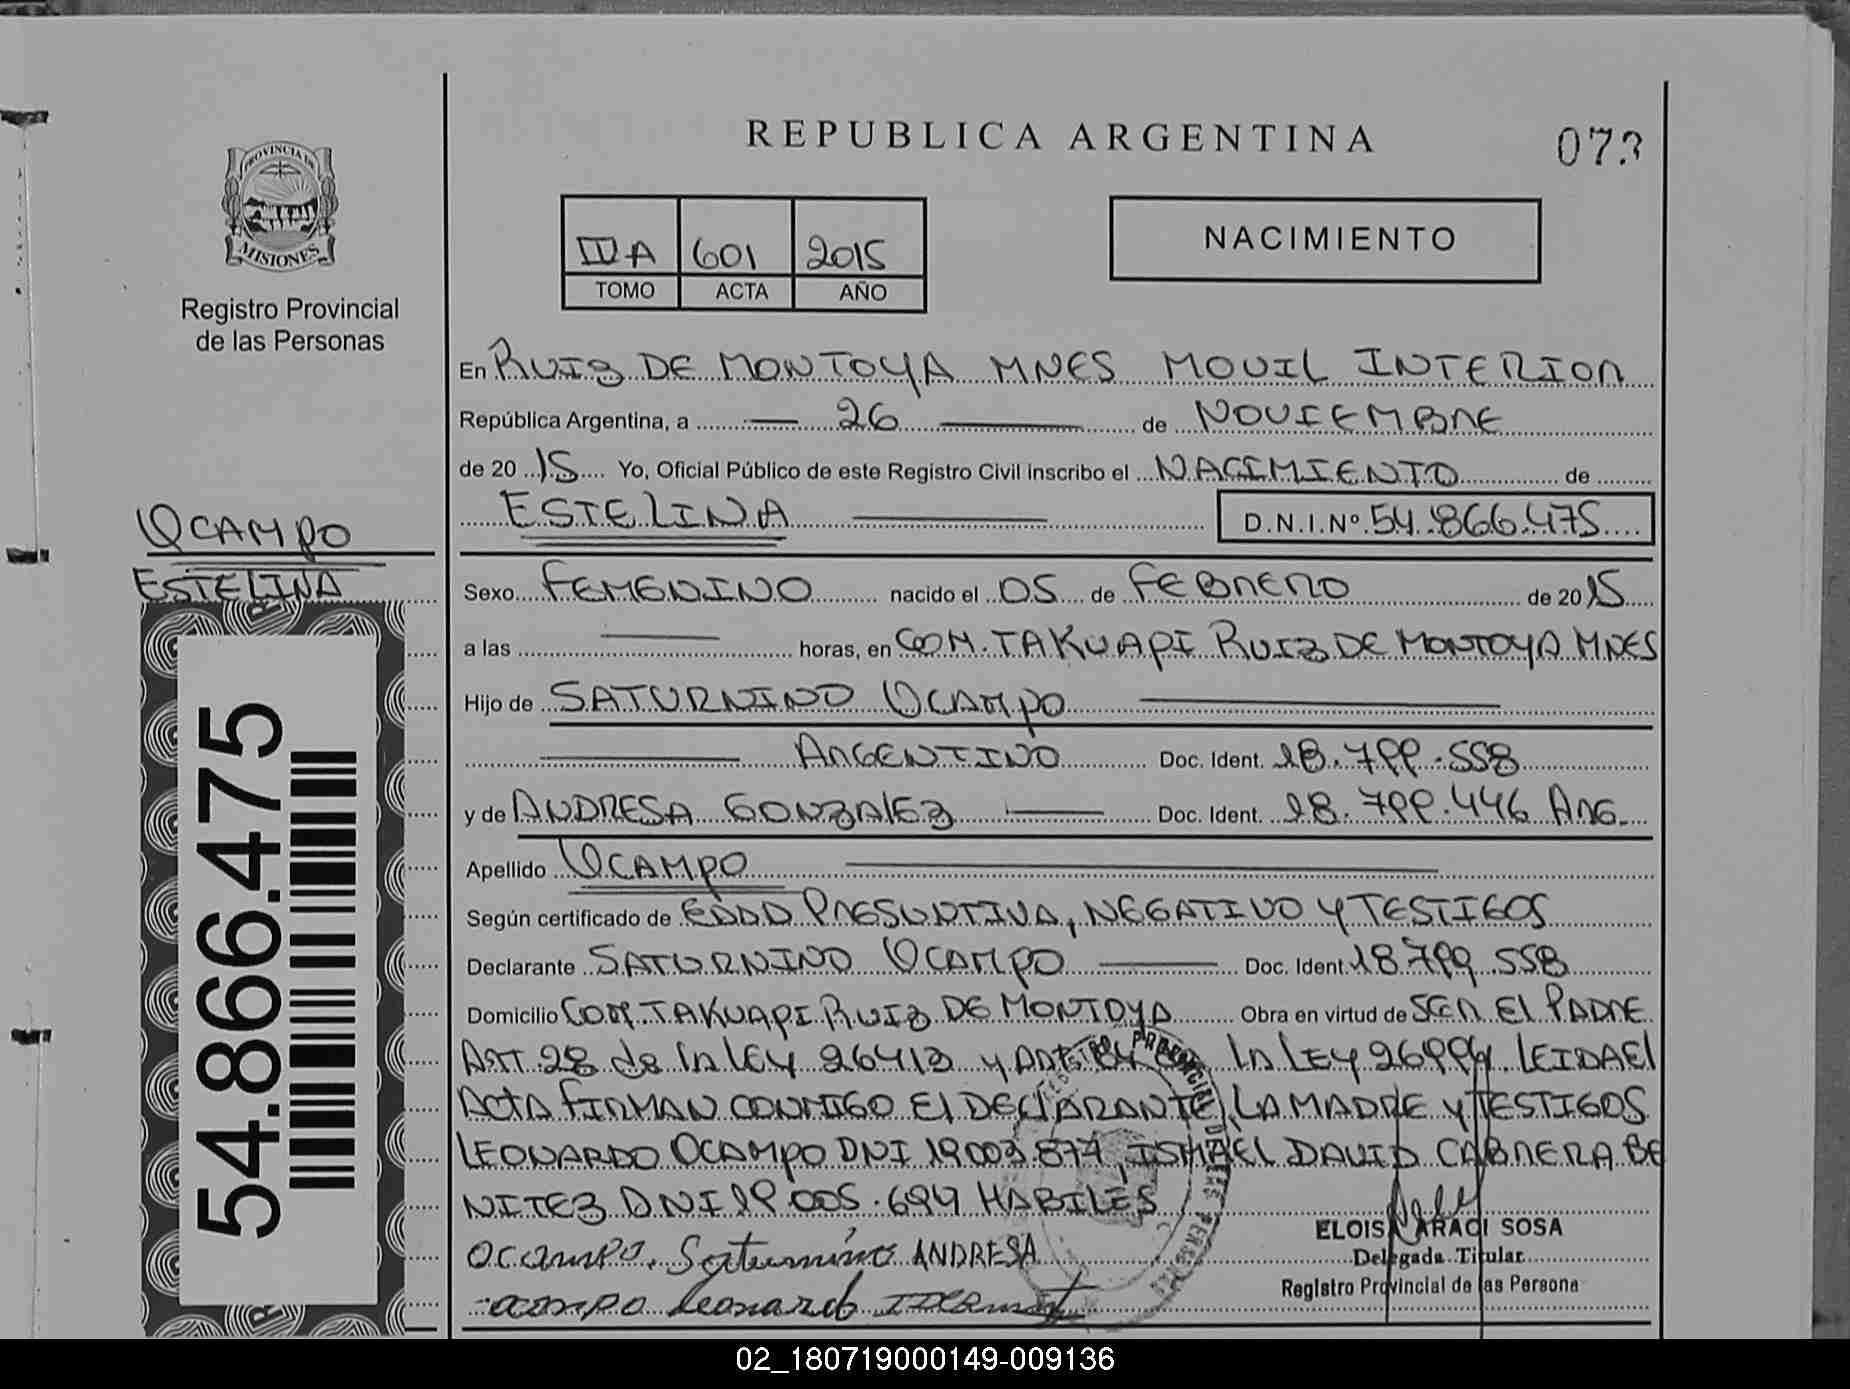 REPUBLICA ARGENTINA
073
PROVINCIA DE
MISIONES
Registro Provincial
de las Personas
IIIA 601 2015
TOMO ACTA AÑO
NACIMIENTO
En RUIZ DE MONTOYA MNES MOVIL INTERIOR
República Argentina, a 26 de NOVIEMBRE
de 20 15 Yo, Oficial Público de este Registro Civil inscribo el NACIMIENTO de
ESTELINA D.N.I.Nº 54.866.475
OCAMPO
ESTELINA
54.866.475
Sexo FEMENINO nacido el 05 de FEBRERO de 20 15
a las horas, en COM. TAKUAPI RUIZ DE MONTOYA MNES
Hijo de SATURNINO OCAMPO
ARGENTINO Doc. Ident. 18.799.558
y de ANDRESA GONZALEZ Doc. Ident. 18.799.446 ARG.
Apellido OCAMPO
Según certificado de EDAD PRESUNTIVA, NEGATIVO Y TESTIGOS
Declarante SATURNINO OCAMPO Doc. Ident. 18.799.558
Domicilio COM. TAKUAPI RUIZ DE MONTOYA Obra en virtud de SER EL PADRE
ART. 28 de la LEY 26413 y ART. 84 LA LEY 26994 LEIDA EL
ACTA FIRMAN CONMIGO EL DECLARANTE, LA MADRE Y TESTIGOS
LEONARDO OCAMPO DNI 19.003.877, ISMAEL DAVID CABRERA BE
NITEZ DNI 19.005.694 HABILES
OCAMPO. Saturnino ANDRESA
ocampo Leonardo
ELOISA ARACI SOSA
Delegada Titular
Registro Provincial de las Persona
02_180719000149-009136